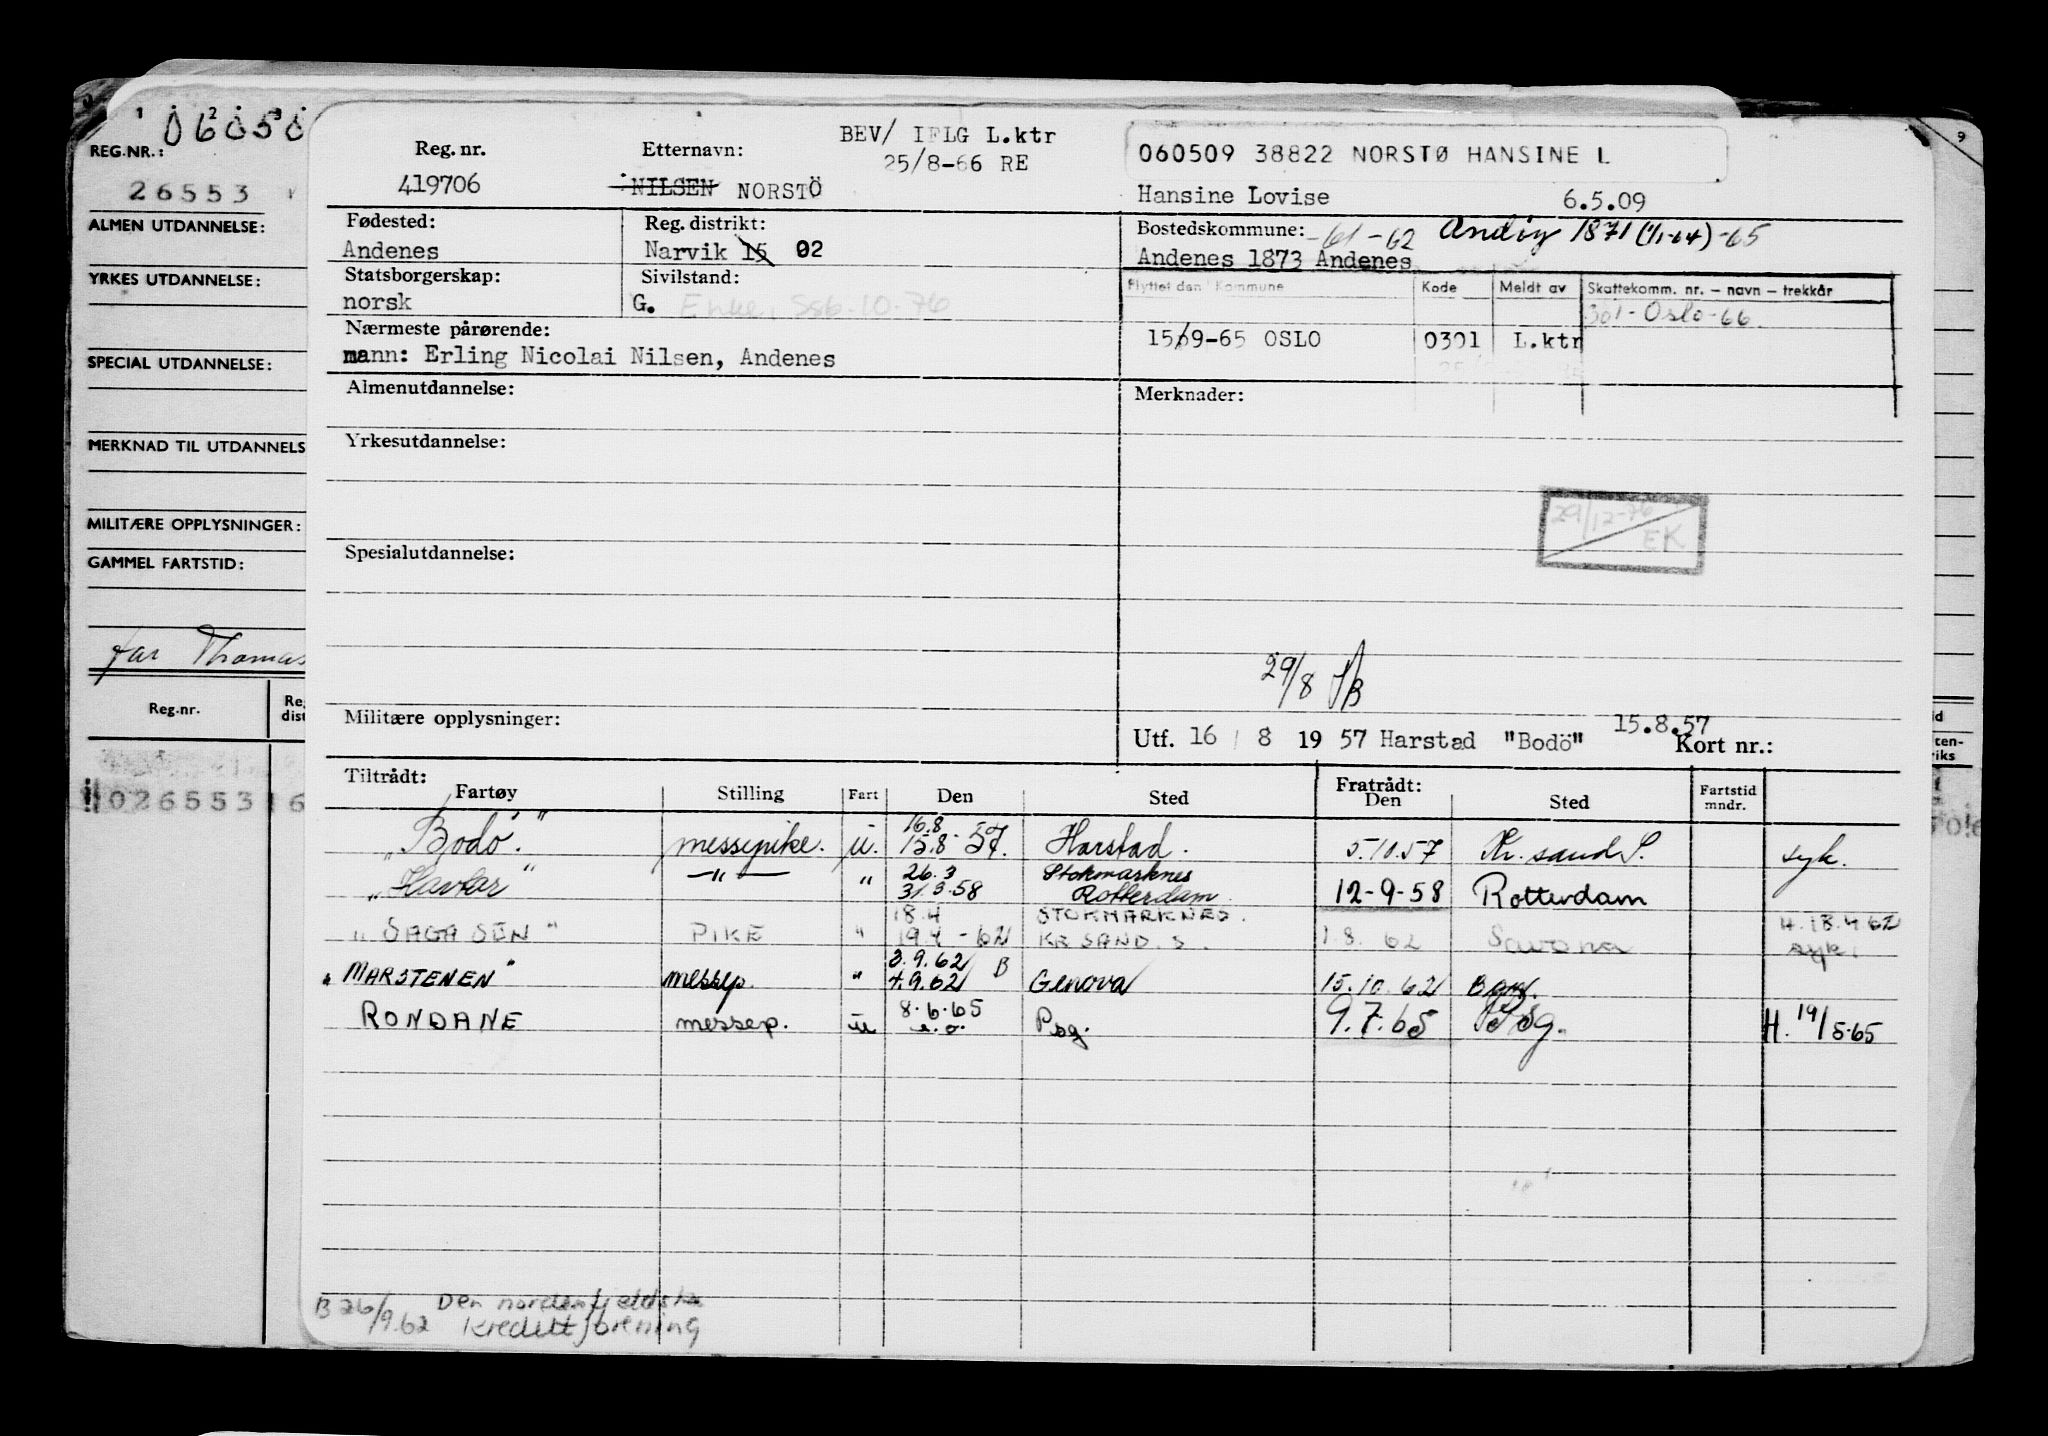 060509 38822 NORSTØ HANSINE L
Reg. nr. Etternavn: BEV/ IFLG L.ktr
25/8-66 RE
419706 NILSEN NORSTÖ Hansine Lovise 6.5.09
Fødested: Reg. distrikt: Bostedskommune: -61-62 Andøy 1871 (1/1-64)-65
Andenes Narvik 15 02 Andenes 1873 Andenes
Statsborgerskap: Sivilstand: Flyttet den Kommune Kode Meldt av Skattekomm. nr. – navn – trekkår
norsk G. Enke, SSB. 10-76 301-Oslo-66
Nærmeste pårørende: 15/9-65 OSLO 0301 L.ktr
mann: Erling Nicolai Nilsen, Andenes
Almenutdannelse: Merknader:
Yrkesutdannelse:
29/12-76 EK
Spesialutdannelse:
29/8
Militære opplysninger: 15.8.57
Utf. 16 / 8 19 57 Harstad "Bodö" Kort nr.:
Tiltrådt: Fratrådt:
Fartøy Stilling Fart Den Sted Den Sted Fartstid mndr.
16.8
"Bodö." messepike. u. 15.8-57. Harstad. 5.10.57 Kr. sand S. syk.
26.3 Stokmarknes
"Havtor" -"- " 31.3.58 Rotterdam 12-9-58 Rotterdam
18.4 STOKMARKNES. H. 18.4.62
"SAGA SEN" PIKE " 19.4-62 KR SAND. S. 1.8.62 Savona syk.
3.9.62 B
"MARSTENEN" messep. " 4.9.62 Genova 15.10.62
8.6.65
RONDANE messep. u u.o. Psg. 9.7.65 Psg. H. 19/5-65
B 26/9.62 Den nordenfjeldske
Kredittforening
06050
REG.NR.:
26553
ALMEN UTDANNELSE:
YRKES UTDANNELSE:
SPECIAL UTDANNELSE:
MERKNAD TIL UTDANNELS
MILITÆRE OPPLYSNINGER:
GAMMEL FARTSTID:
far Thomas
Reg.nr.
026553 6